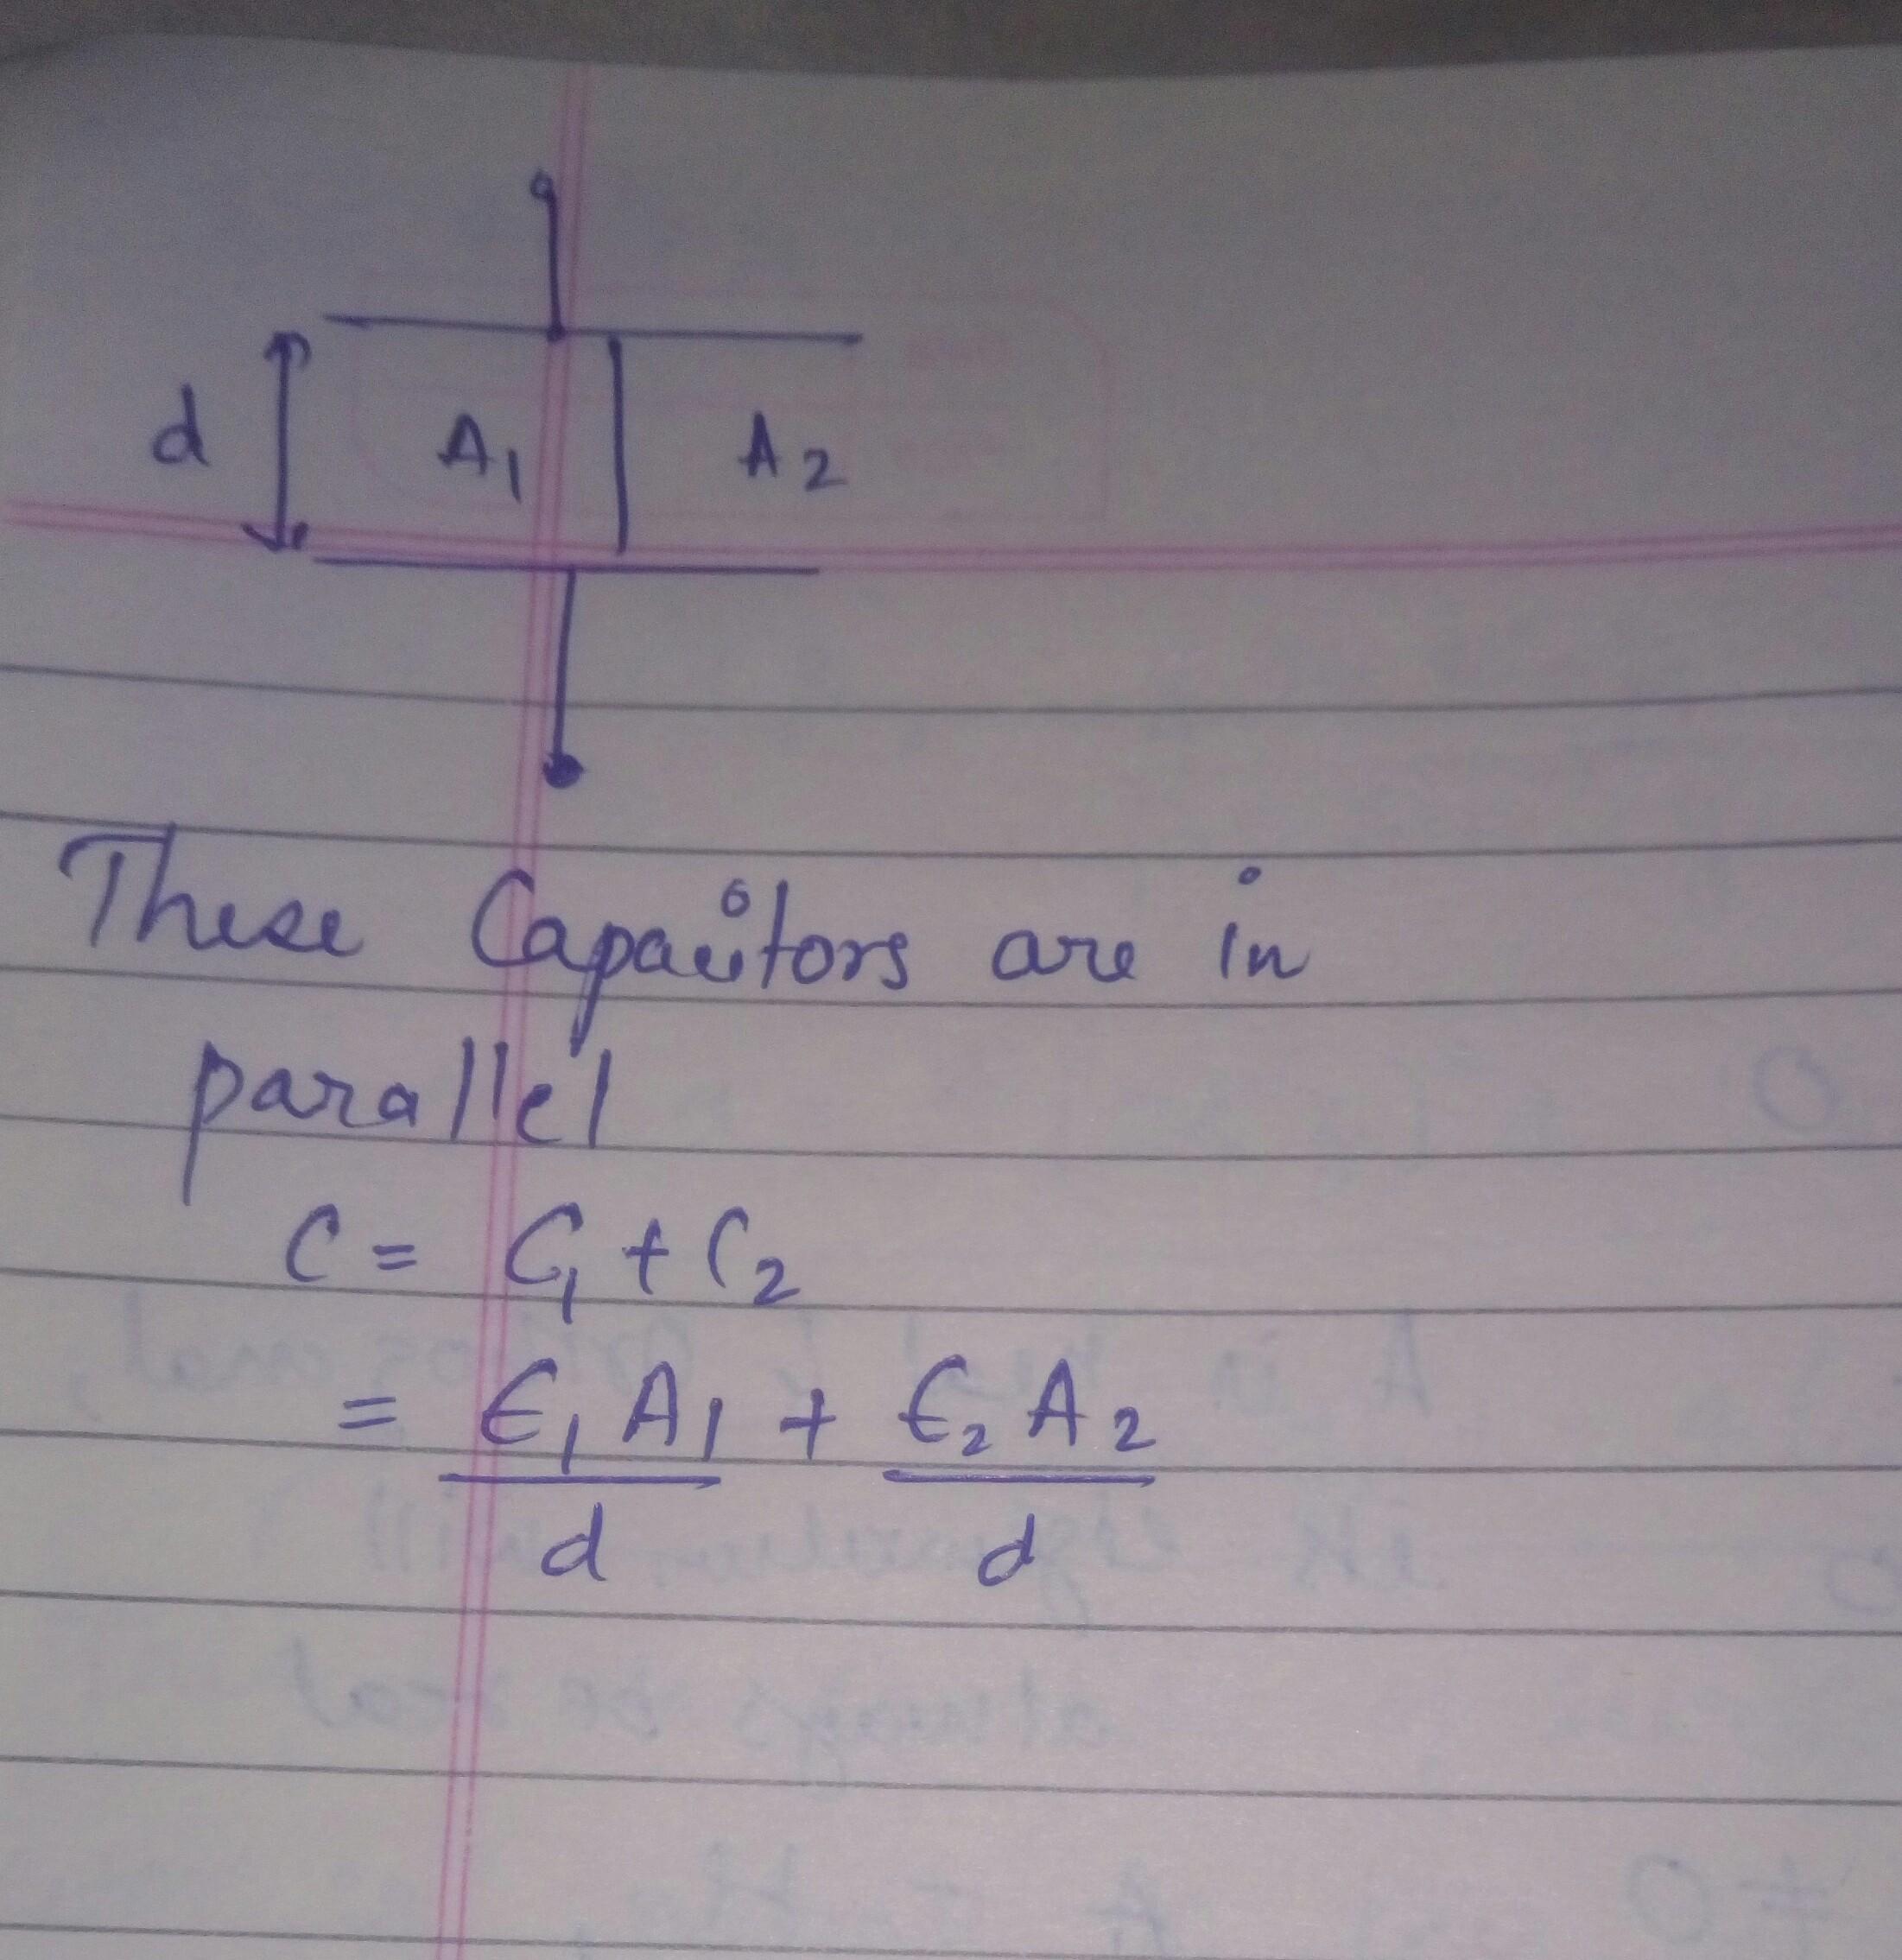 d A₁ A₂
These Capacitors are in
parallel
C = C₁ + C₂
= ϵ₁ A₁ + ϵ₂ A₂
d d